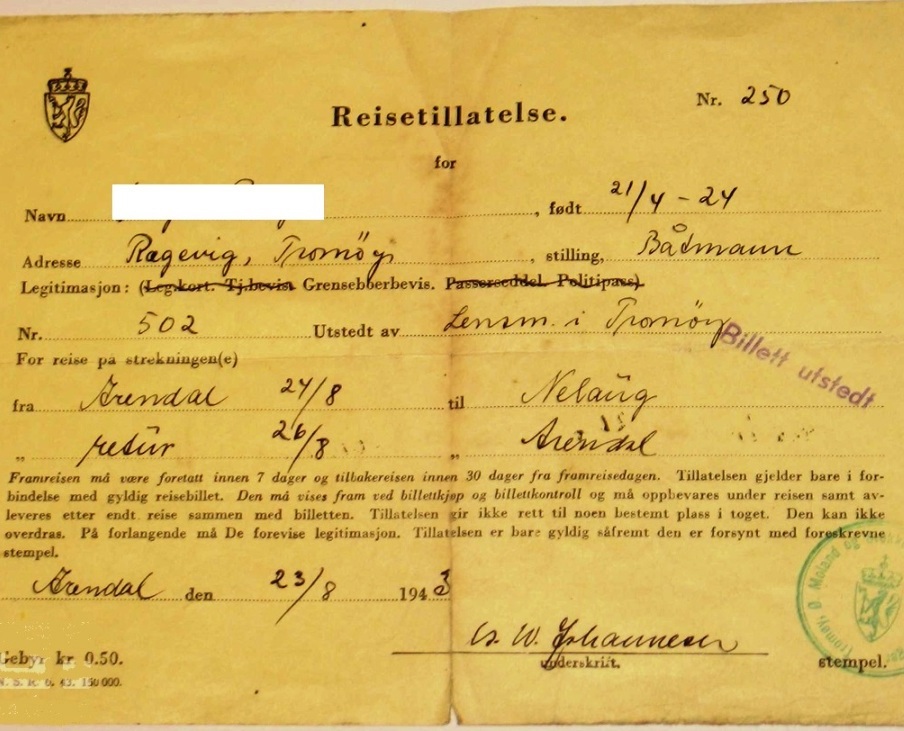 Nr. 250
Reisetillatelse.
for
Navn , født 21/4 - 24
Adresse Rægevig, Tromöy , stilling, Båtmann
Legitimasjon: (Leg.kort. Tj.bevis. Grenseboerbevis. Passerseddel. Politipass).
Nr. 502 Utstedt av Lensm. i Tromöy
Billett utstedt
For reise på strekningen(e)
fra Arendal 24/8 til Nelaug
„ retur 26/8 „ Arendal
Framreisen må være foretatt innen 7 dager og tilbakereisen innen 30 dager fra framreisedagen. Tillatelsen gjelder bare i for-
bindelse med gyldig reisebillet. Den må vises fram ved billettkjøp og billettkontroll og må oppbevares under reisen samt av-
leveres etter endt reise sammen med billetten. Tillatelsen gir ikke rett til noen bestemt plass i toget. Den kan ikke
overdras. På forlangende må De forevise legitimasjon. Tillatelsen er bare gyldig såfremt den er forsynt med foreskrevne
stempel.
Arendal den 23/8 1943
Tromøy, Ø. Moland og
W. Johannesen
Gebyr kr. 0.50. underskrift. stempel.
43. 150 000.